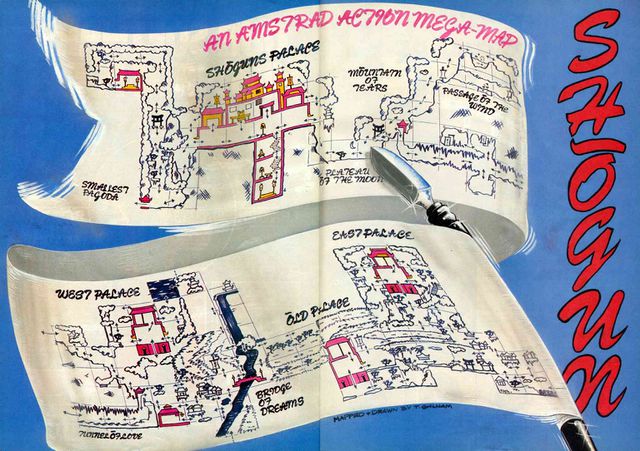 AN AMSTRAD ACTION MEGA-MAP
SHŌGUNS PALACE
MOUNTAIN
OF
TEARS
PASSAGE OF THE
WIND
SMALLEST
PAGODA
PLATEAU
OF THE MOON
SHŌGUN
EAST PALACE
WEST PALACE
OLD PALACE
BRIDGE
OF
DREAMS
TUNNEL OF LOVE
MAPPED & DRAWN BY T. GILHAM